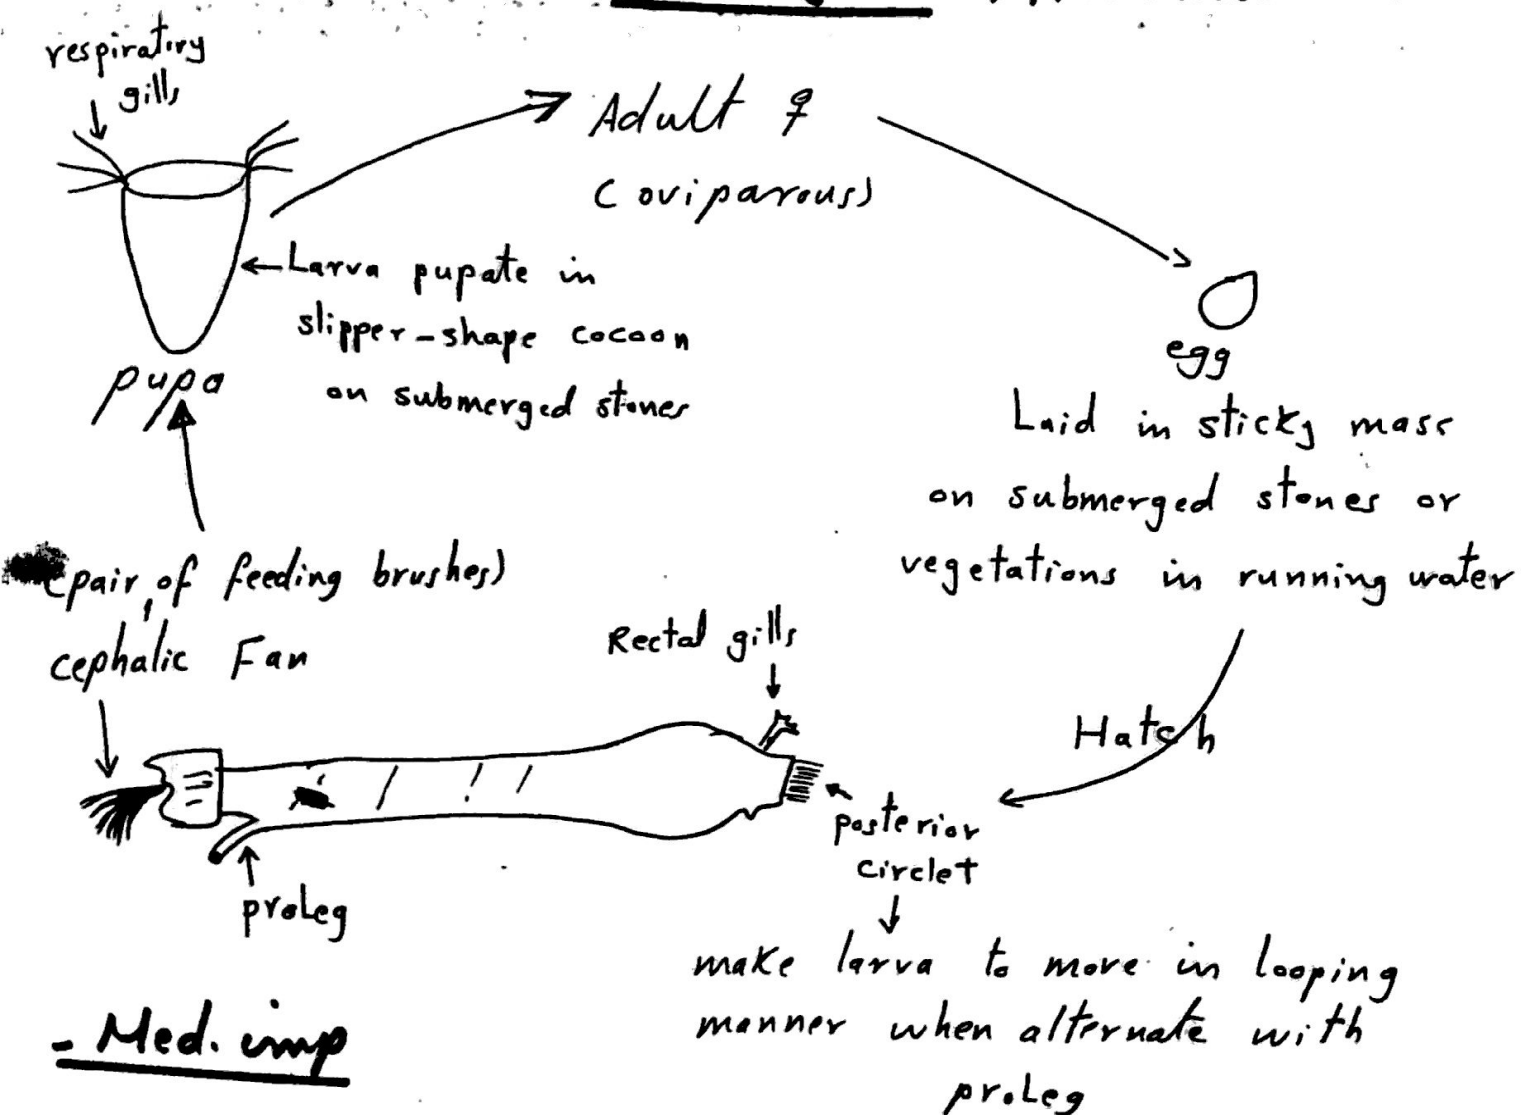 respiratory
gills
Adult ♀
(oviparous)
Larva pupate in
slipper-shape cocoon
on submerged stones
pupa
egg
Laid in sticky mass
on submerged stones or
vegetations in running water
(pair, of feeding brushes)
cephalic Fan
Rectal gills
Hatch
posterior
circlet
proleg
make larva to move in looping
manner when alternate with
proleg
- Med. imp